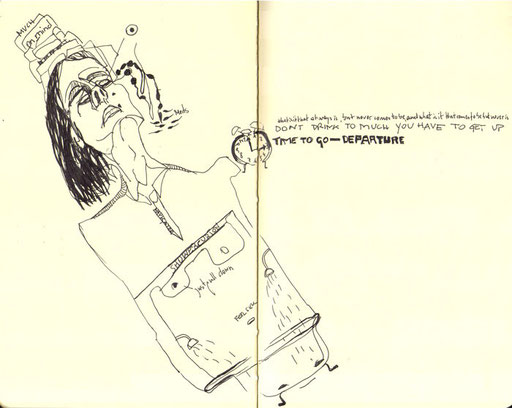 MUCH
on mind
what is it that always is, but never comes to be, and what is it that comes to be but never is
DONT DRINK TO MUCH YOU HAVE TO GET UP
TIME TO GO — DEPARTURE
just pull down
FEEL